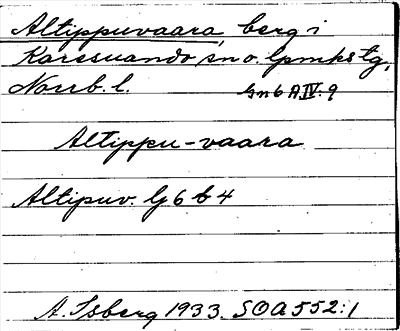 Altippuvaara, berg i
Karesuando sn o. lpmks tg,
Norrb. l. Gn 6 A IV. 9
Altippu-vaara
Altipuv. G 6 b 4
A. Isberg 1933. SOA 552:1